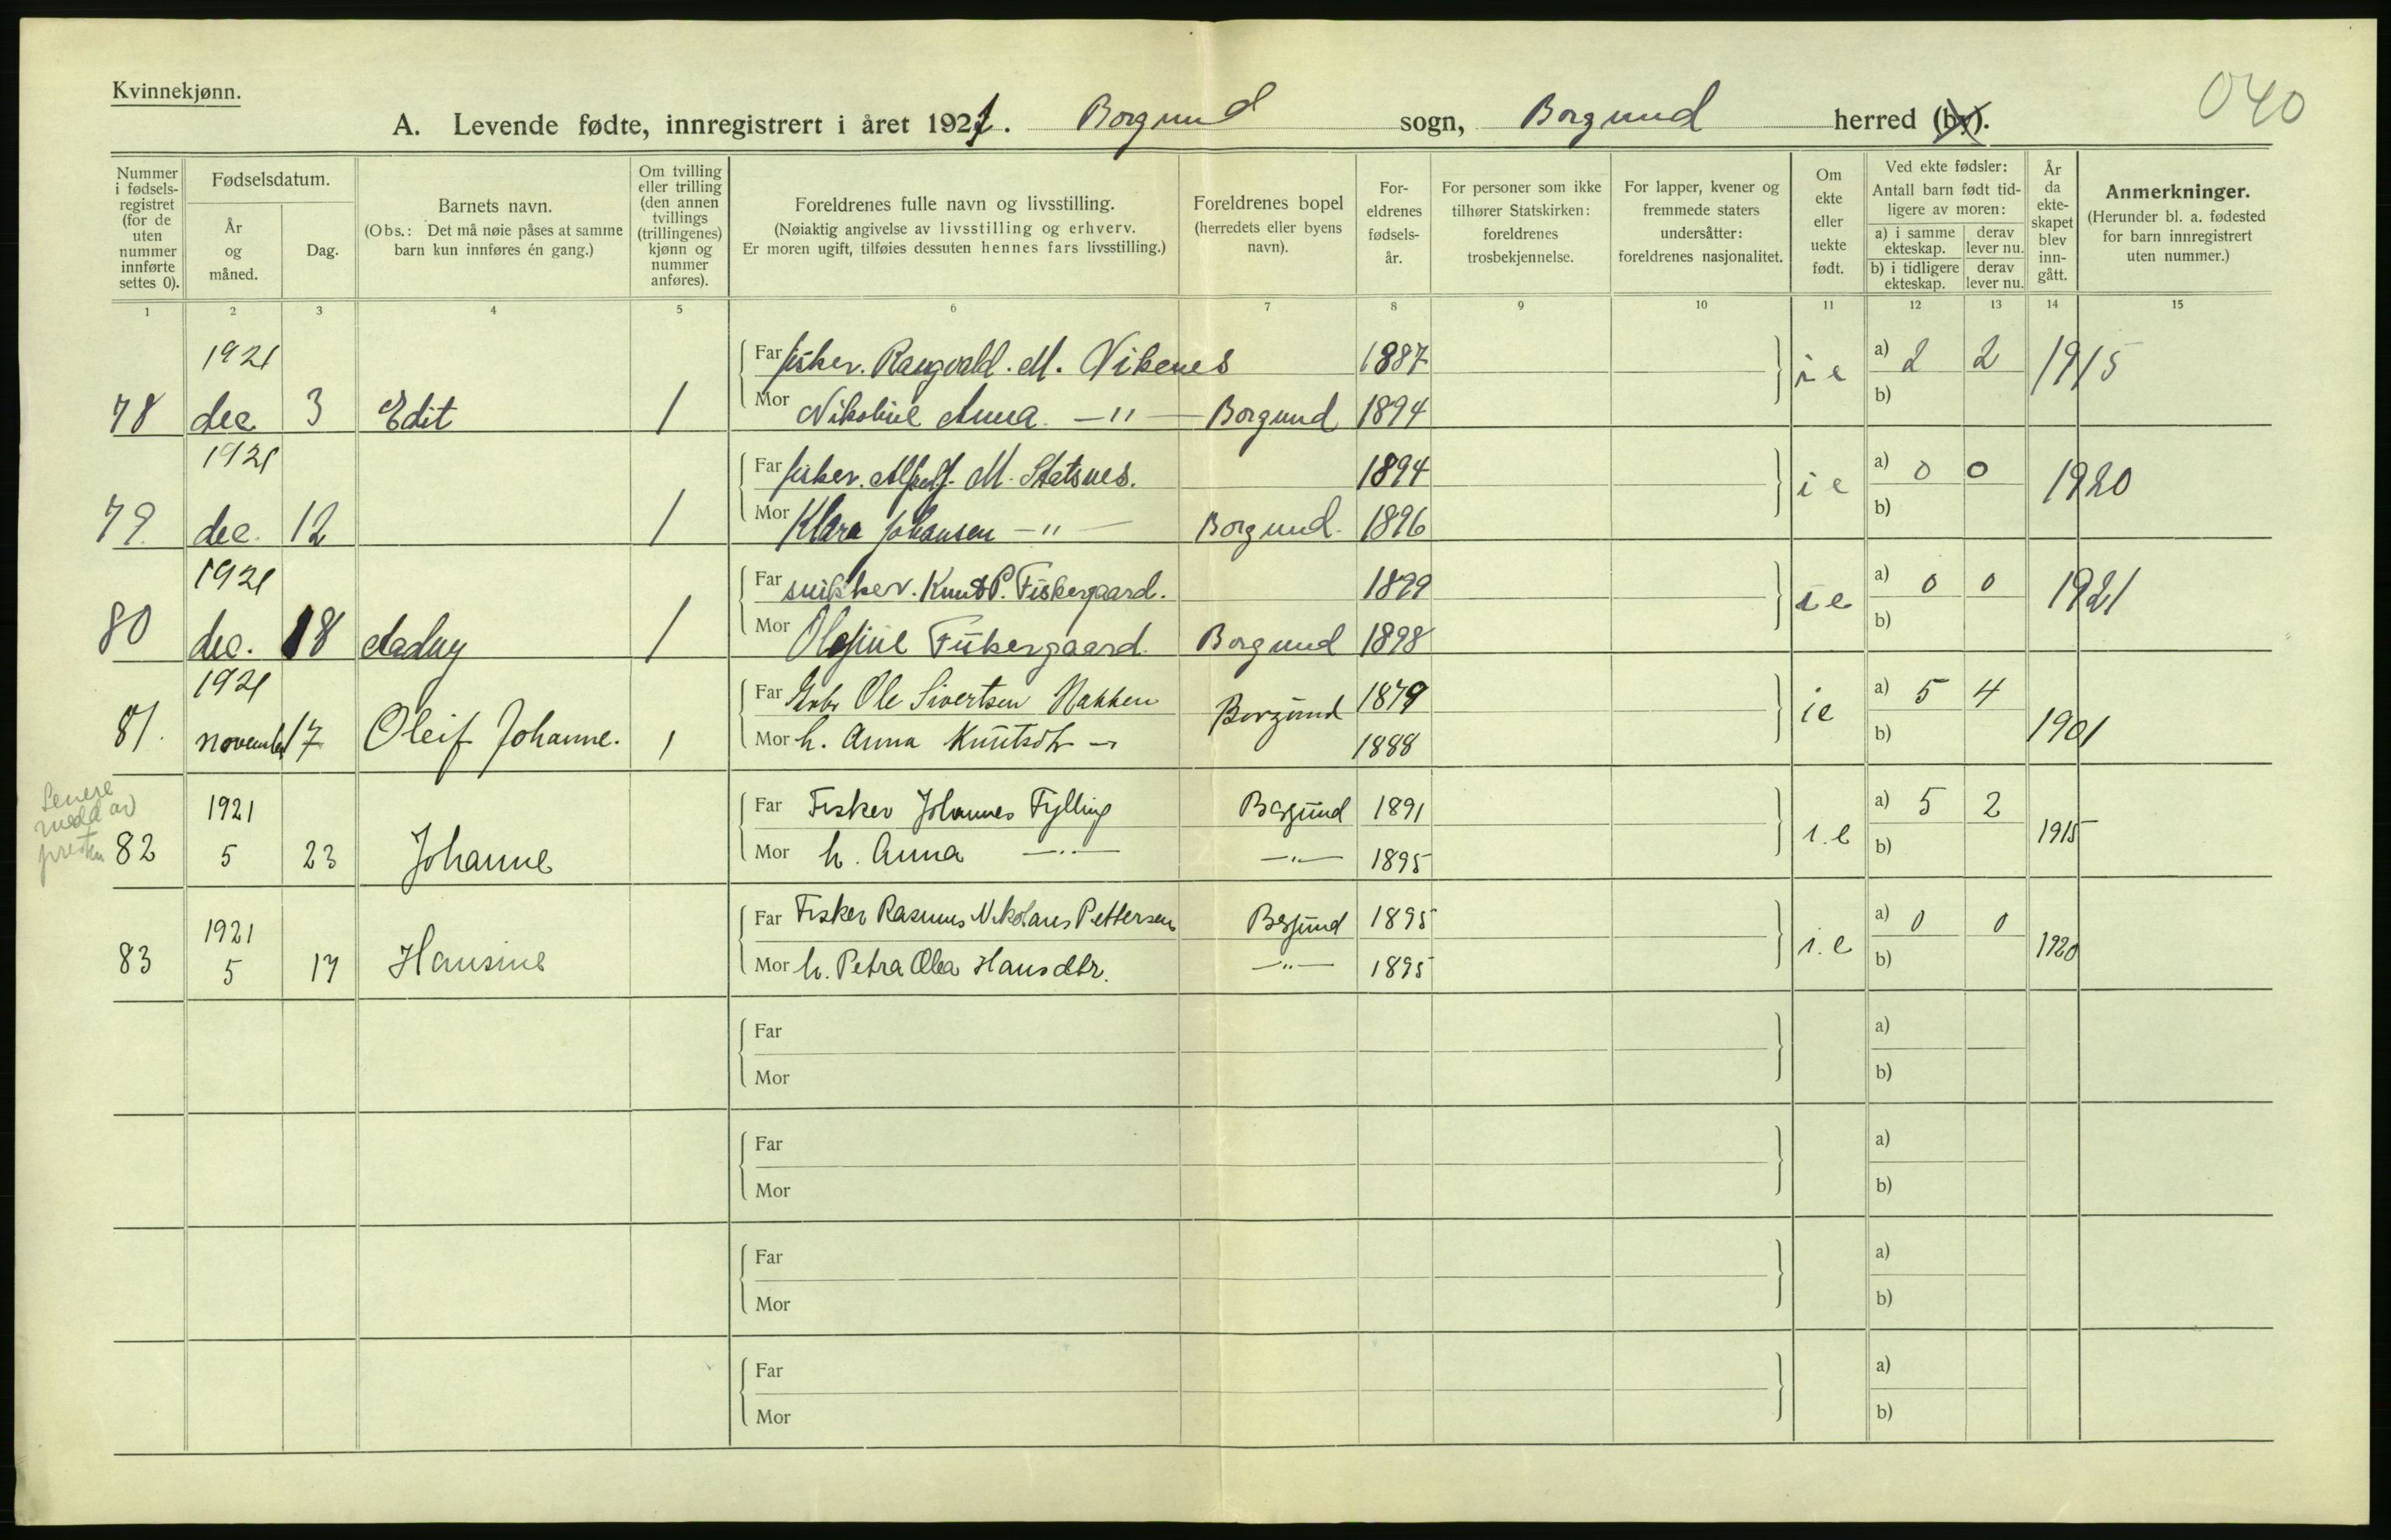 Kvinnekjønn.
040
A. Levende fødte, innregistrert i året 1921. Borgund sogn, Borgund herred (by).
Nummer i fødsels-registret (for de uten nummer innførte settes 0).
Fødselsdatum.
År og måned.
Dag.
Barnets navn.
(Obs.: Det må nøie påses at samme barn kun innføres én gang.)
Om tvilling eller trilling (den annen tvillings (trillingenes) kjønn og nummer anføres).
Foreldrenes fulle navn og livsstilling.
(Nøiaktig angivelse av livsstilling og erhverv.
Er moren ugift, tilføies dessuten hennes fars livsstilling.)
Foreldrenes bopel
(herredets eller byens navn).
For-eldrenes fødsels-år.
For personer som ikke tilhører Statskirken: foreldrenes trosbekjennelse.
For lapper, kvener og fremmede staters undersåtter: foreldrenes nasjonalitet.
Om ekte eller uekte født.
Ved ekte fødsler:
Antall barn født tid-ligere av moren:
a) i samme ekteskap.
derav lever nu.
b) i tidligere ekteskap.
derav lever nu.
År da ekte-skapet blev inn-gått.
Anmerkninger.
(Herunder bl. a. fødested for barn innregistrert uten nummer.)
1 2 3 4 5 6 7 8 9 10 11 12 13 14 15
1921 Far fisker. Rangvald. M. Vikenes 1887 i e a) 2 2 1915
78 dec 3 Edit / Mor Nikoline Anna —"— Borgund 1894 b)
1921 Far fisker. M. Statsnes. 1894 i e a) 0 0 1920
79 dec. 12 / Mor Klara Johansen —"— Borgund 1896 b)
1921 Far snikker. Knut P. Fiskergaard. 1899 i e a) 0 0 1921
80 dec. 18 Aaday / Mor Olefine Fiskergaard. Borgund 1898 b)
1921 Far Ole Sivertsen Nakken Borgund 1879 ie a) 5 4 1901
81. november 17 Oleif Johanne. / Mor h. Anna Knutsdtr —"— 1888 b)
Senere medd av presten
1921 Far Fisker Johannes Fylling Borgund 1891 i.e a) 5 2 1915
82 5 23 Johanne Mor h. Anna —"— —"— 1895 b)
1921 Far Fisker Rasmus Nikolaus Pettersen Borgund 1895 i.e a) 0 0 1920
83 5 17 Hansine Mor h. Petra Olea Hansdtr. —"— 1895 b)
Far a)
Mor b)
Far a)
Mor b)
Far a)
Mor b)
Far a)
Mor b)